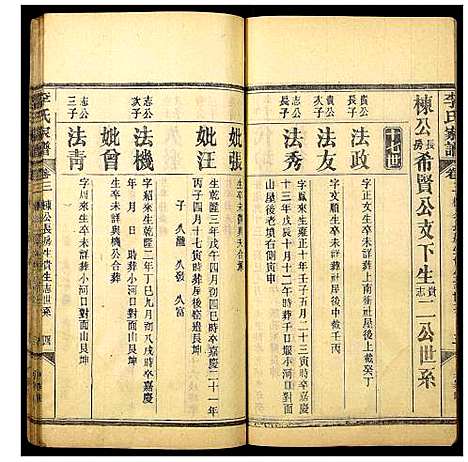 李氏家譜
棟公長房希賢公支下生貴志二公世系
十七世
貴公長子
法政
字正文生卒未詳葬上南衝社屋後上截癸丁
貴公次子
法友
字文順生卒未詳葬社屋後中截壬丙
志公長子
法秀
字鳳來生雍正十年壬子五月二十三寅時卒嘉慶
十三年戊辰十月十二戌時葬千日堰小河口對面
山屋後老墳右側寅申
妣張
生卒未詳與夫合葬
子 久融 久發 久富
妣汪
生乾隆三年戊午四月初四巳時卒嘉慶二十一年
丙子四月十七寅時葬屋後窑邊艮坤
志公次子
法機
字紹來生乾隆二年丁巳九月初八戌時卒嘉慶
年 月 日 時葬小河口對面山艮坤
妣曾
生卒未詳與機公合葬
志公三子
法青
字 周生卒未詳葬小河口對面山艮坤
李氏家譜
卷三
棟公長房生貴生志世系
四